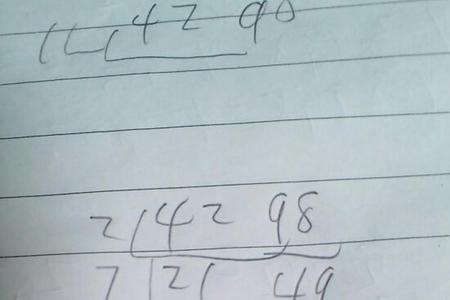 42 98
2 42 98
7 21 49